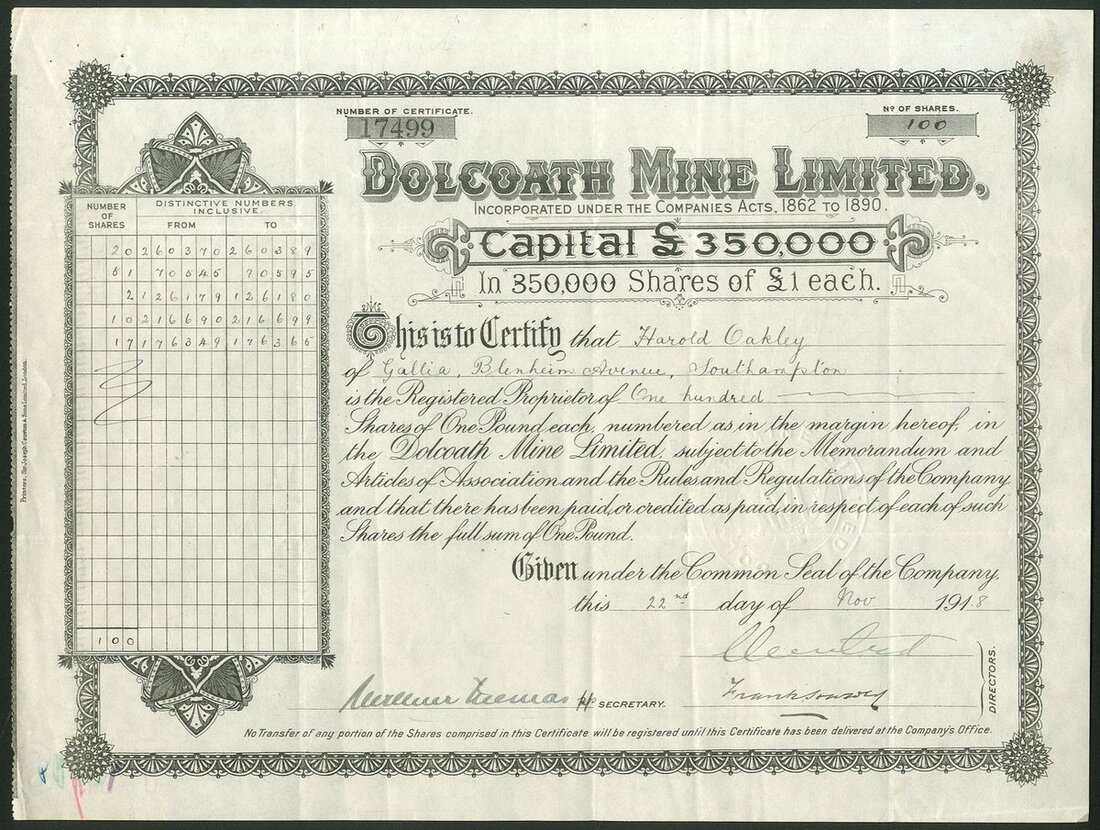 NUMBER OF CERTIFICATE.
17499
Nº OF SHARES.
100
DOLCOATH MINE LIMITED,
INCORPORATED UNDER THE COMPANIES ACTS, 1862 TO 1890.
Capital £350,000
In 350,000 Shares of £1 each.
NUMBER OF SHARES
DISTINCTIVE NUMBERS INCLUSIVE.
FROM TO
20 260370 260389
51 70545 70595
2 126179 126180
10 216690 216699
17 176349 176365
100
This is to Certify that Harold Oakley
of Gallia, Blenheim Avenue, Southampton
is the Registered Proprietor of One hundred
Shares of One Pound each, numbered as in the margin hereof, in
the Dolcoath Mine Limited, subject to the Memorandum and
Articles of Association and the Rules and Regulations of the Company
and that there has been paid, or credited as paid, in respect of each of such
Shares the full sum of One Pound.
Given under the Common Seal of the Company,
this 22nd day of Nov 1918
DIRECTORS.
SECRETARY.
No Transfer of any portion of the Shares comprised in this Certificate will be registered until this Certificate has been delivered at the Company's Office.
Printers, Sir Joseph Causton & Sons Limited, London.